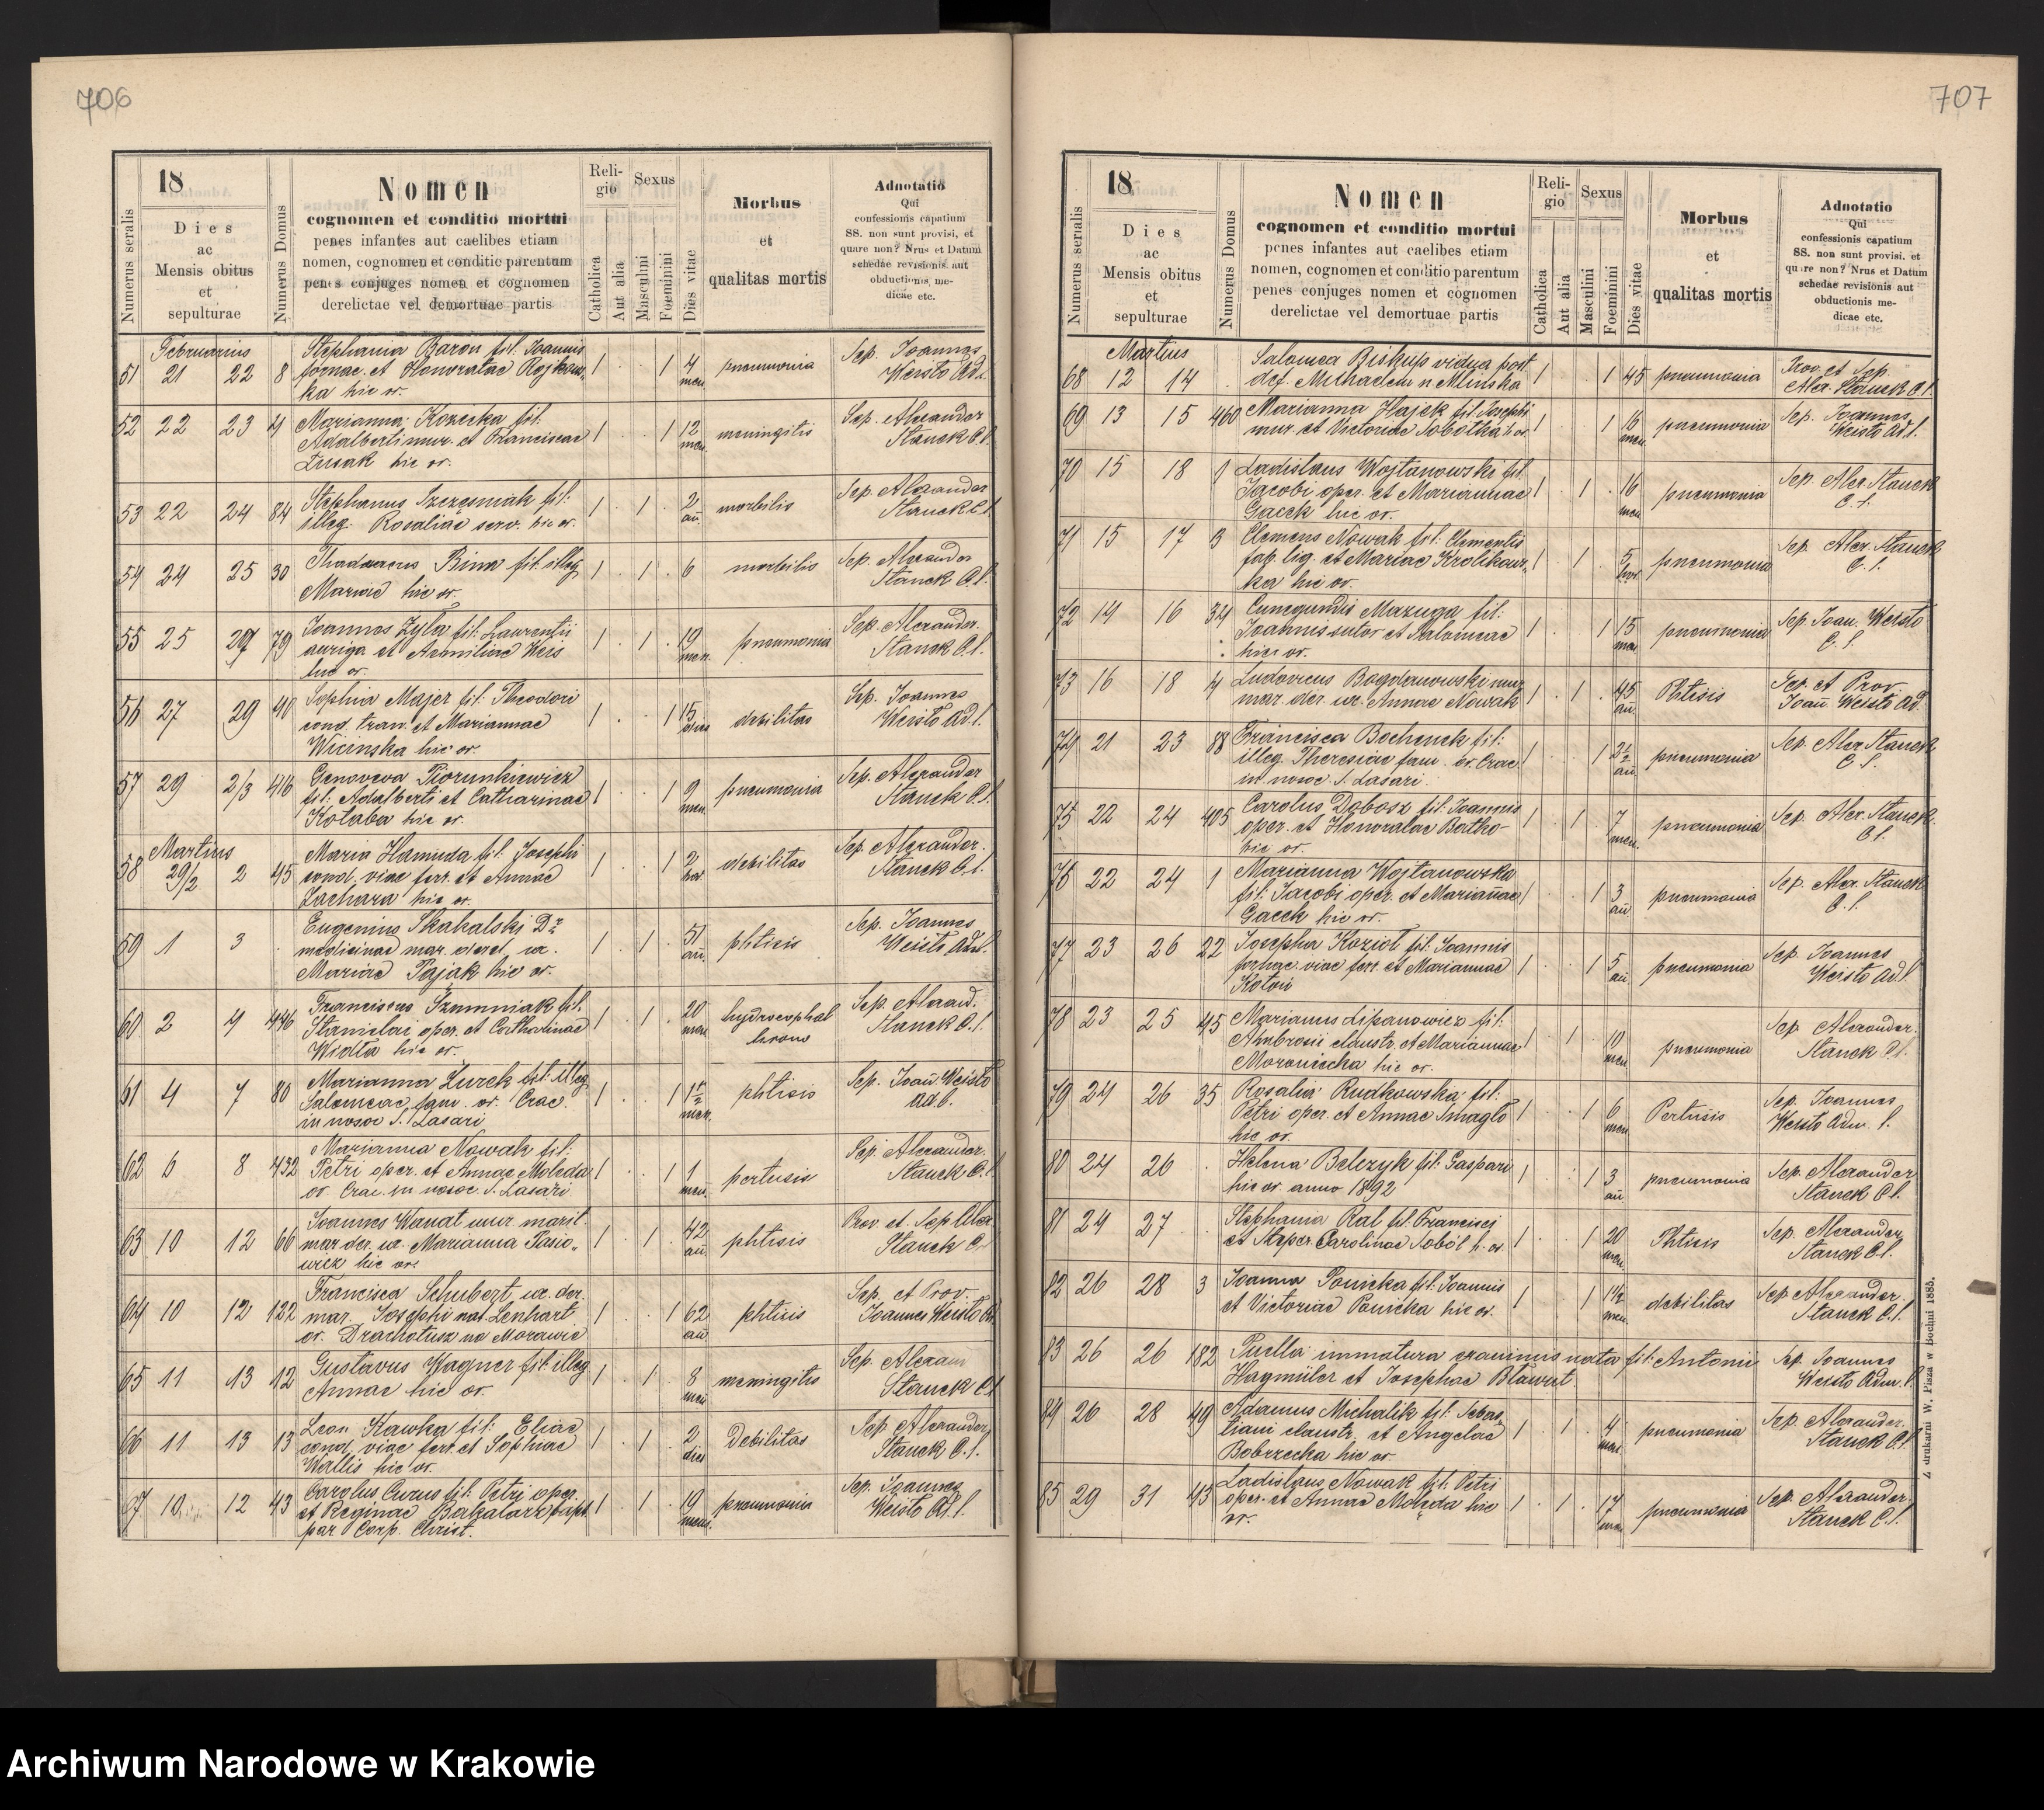 706
18
Numerus serialis
Dies
ac
Mensis obitus
et
sepulturae
Numerus Domus
Nomen
cognomen et conditio mortui
penes infantes aut caelibes etiam
nomen, cognomen et conditio parentum
penes conjuges nomen et cognomen
derelictae vel demortuae partis
Religio
Catholica
Aut alia
Sexus
Masculini
Foeminini
Dies vitae
Morbus
et
qualitas mortis
Adnotatio
Qui
confessionis capatium
SS. non sunt provisi, et
quare non? Nrus et Datum
schedae revisionis aut
obductionis me-
dicae etc.
Februarius
51 21 22 8 Stephania Baron fil. Joannis 1 . . 1 4 men. pneumonia Sep. Joannes
fornac. et Honoratae Weisło Ad.
ka hic or.
52 22 23 4 Marianna Kozecka fil. 1 . . 1 12 men. meningitis Sep. Alexander
Adalberti mur. et Franciscae Stanek C.l.
Zusak hic or.
53 22 24 84 Stephanus fil: 1 . 1 . 2 an. morbilis Sep. Alexander
illeg. Rosaliae serv. hic or. Stanek C.l.
54 24 25 30 Thaddaeus Bima fil. illeg. 1 . 1 . 6 morbilis Sep. Alexander
Mariae hic or. Stanek C.l.
55 25 27 79 Joannes Zyla fil: Laurentii 1 . 1 . 19 men. pneumonia Sep. Alexander
auriga et Aemiliae Weis Stanek C.l.
hic or.
56 27 29 40 Sophia Majer fil: Theodori 1 . . 1 15 dies debilitas Sep. Joannes
cond. tran. et Mariannae Weisło Ad.l.
Wicinska hic or.
57 29 2/3 416 Genoveva Piorunkiewicz 1 . . 1 9 men. pneumonia Sep. Alexander
fil: Adalberti et Catharinae Stanek C.l.
Kolaba hic or.
Martius
58 29/2 2 45 Maria Hamuda fil. Josephi 1 . . 1 2 hor. debilitas Sep. Alexander
cond. viae ferr. et Annae Stanek C.l.
Zachara hic or.
59 1 3 . Eugenius Skakalski Dr 1 . 1 . 51 an. phtisis Sep. Joannes
medicinae mar. ux. Weisło Ad.l.
Mariae Pająk hic or.
60 2 4 446 Franciscus Szumniak fil. 1 . 1 . 20 men. hydrocephal. Sep. Alexand.
Stanislai oper. et Catharinae Stanek C.l.
Widła hic or.
61 4 7 80 Marianna Żurek fil: illeg. 1 . . 1 1½ men. phtisis Sep. Joan. Weisło
Salomeae fam. or. Crac. Ad.l.
in nosoc. S. Lasari
62 6 8 432 Marianna Nowak fil: 1 . . 1 1 men. pertusis Sep. Alexander.
Petri oper. et Annae Moleda Stanek C.l.
or. Crac. in nosoc. S. Lasari
63 10 12 66 Joannes Wanat mur. 1 . 1 . 42 an. phtisis Prov. et Sep. Alex.
mar. der. ux. Marianna Pasio- Stanek C.l.
wicz hic or.
64 10 12 132 Francisca Schubert ux. der. 1 . . 1 62 an. phtisis Sep. et Prov.
mar. Josephi nat. Lenhart Joannes Weisło
or. Drachotusz na Morawie
65 11 13 12 Gustavus Wagner fil: illeg. 1 . 1 . 8 men. meningitis Sep. Alexan
Annae hic or. Stanek C.l.
66 11 13 13 Leon Kawka fil: Eliae 1 . 1 . 2 dies Debilitas Sep. Alexander
cond. viae ferr. et Sophiae Stanek C.l.
Wallis hic or.
67 10 12 43 Carolus Curus fil: Petri oper. 1 . 1 . 19 mens. pneumonia Sep. Joannes
et Reginae Weisło Ad.l.
par Corp. Christ.
707
18
Numerus serialis
Dies
ac
Mensis obitus
et
sepulturae
Numerus Domus
Nomen
cognomen et conditio mortui
penes infantes aut caelibes etiam
nomen, cognomen et conditio parentum
penes conjuges nomen et cognomen
derelictae vel demortuae partis
Religio
Catholica
Aut alia
Sexus
Masculini
Foeminini
Dies vitae
Morbus
et
qualitas mortis
Adnotatio
Qui
confessionis capatium
SS. non sunt provisi. et
quare non? Nrus et Datum
schedae revisionis aut
obductionis me-
dicae etc.
Martius
68 12 14 . Salomea Biskup vidua post 1 . . 1 45 pneumonia Prov. et Sep.
def. Michaelem n. Mlińska Alex. Stanek C.l.
69 13 15 460 Marianna Hajek fil. Josephi 1 . . 1 16 men. pneumonia Sep. Joannes
mur. et Victoriae Sobotka h. or. Weisło Ad.l.
70 15 18 1 Ladislaus Wojtanowski fil. 1 . 1 . 16 men. pneumonia Sep. Alex. Stanek
Jacobi oper. et Mariannae C.l.
Gacek hic or.
71 15 17 3 Clemens Nowak fil: Clementis 1 . 1 . 5 hor. pneumonia Sep. Alex. Stanek
fab. lig. et Mariae Krolikow- C.l.
ka hic or.
72 14 16 34 Cunegundis Mazuga fil: 1 . . 1 15 men. pneumonia Sep. Joan. Weisło
Joannis sutor et Salomeae C.l.
hic or.
73 16 18 4 Ludovicus Bogdanowski mur. 1 . 1 . 45 an. Phtisis Sep. et Prov.
mar. der. ux. Annae Nowak Joan. Weisło Ad.
74 21 23 88 Francisca Bochenek fil: 1 . . 1 2½ an. pneumonia Sep. Alex. Stanek
illeg. Theresiae fam. or. Crac. C.l.
in nosoc. S. Lasari.
75 22 24 405 Carolus Dobosz fil. Joannis 1 . 1 . 7 men. pneumonia Sep. Alex. Stanek.
oper. et Honoratae Batko- C.l.
hic or.
76 22 24 1 Marianna Wojtanowska 1 . . 1 3 an. pneumonia Sep. Alex. Stanek
fil: Jacobi oper. et Mariannae C.l.
Gacek hic or.
77 23 26 22 Josepha Kozioł fil. Joannis 1 . . 1 5 an. pneumonia Sep. Joannes
fornac. viae ferr. et Mariannae Weisło Ad.l.
78 23 25 45 Marianus Lipanowicz fil: 1 . 1 . 10 men. pneumonia Sep. Alexander.
Ambrosii claustr. et Mariannae Stanek C.l.
hic or.
79 24 26 35 Rosalia Rudkowska fil: 1 . . 1 6 men. Pertusis Sep. Joannes
Petri oper. et Annae Smagło Weisło Adm. l.
hic or.
80 24 26 . Helena Belczyk fil: Gaspari 1 . . 1 3 an. pneumonia Sep. Alexander
hic or. anno 1892 Stanek C.l.
81 24 27 . Stephania Ral fil: Francisci 1 . . 1 20 men. Phtisis Sep. Alexander
et Carolinae Soból h. or. Stanek C.l.
82 26 28 3 Joanna Ponicka fil: Joannis 1 . . 1 1½ men. debilitas Sep. Alexander.
et Victoriae Ponicka hic or. Stanek C.l.
83 26 26 182 Puella immatura exanimis nata fil: Antonii Sep. Joannes
Hagmüler et Josephae Bławut. Weisło Adm. l.
84 26 28 49 Adamus Michalik fil. Sebas- 1 . 1 . 4 men. pneumonia Sep. Alexander.
tiani claustr. et Angelae Stanek C.l.
Bobrzecka hic or.
85 29 31 43 Ladislaus Nowak fil. Petri 1 . 1 . 17 men. pneumonia Sep. Alexander.
oper. et Annae Moleda hic Stanek C.l.
or.
Z drukarni W. Pisza w Bochni 1885.
Archiwum Narodowe w Krakowie